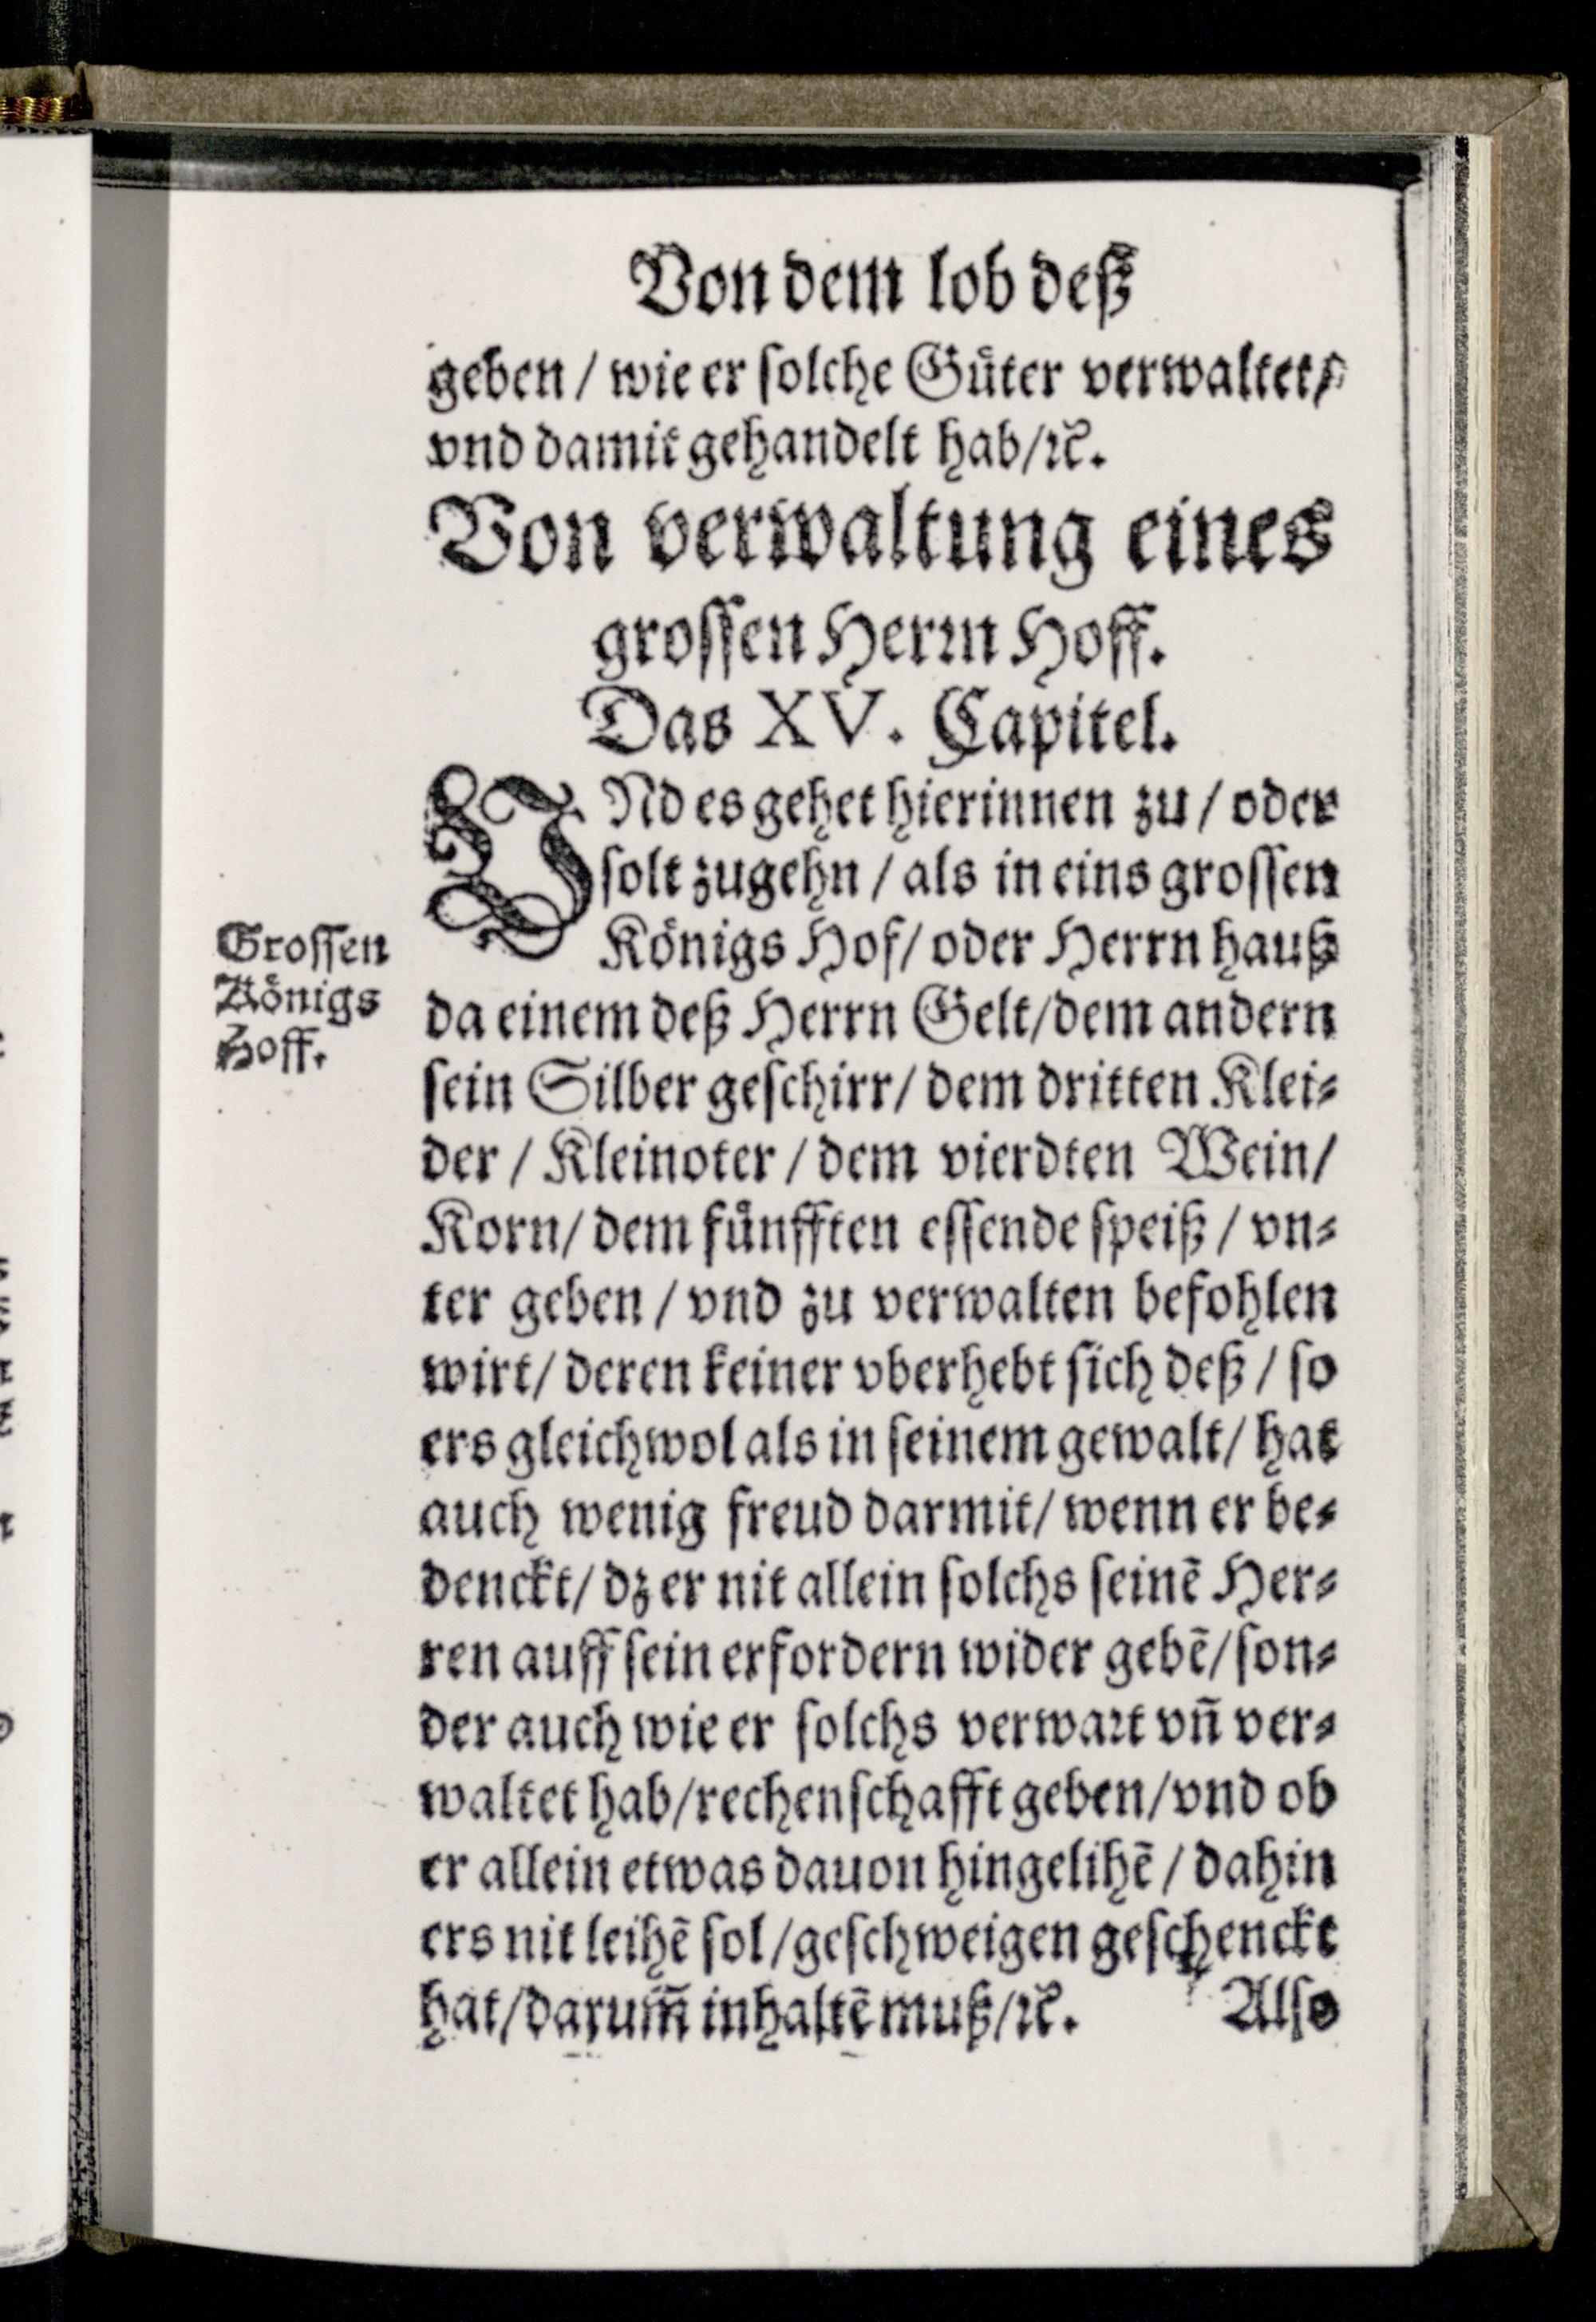 Von dem lob deß
geben / wie er solche Guͤter verwaltet /
vnd damit gehandelt hab /ꝛc.
Von verwaltung eines
grossen Herꝛn Hoff.
Das XV. Capitel.
VNd es gehet hierinnen zu / oder
solt zugehn / als in eins grossen
Koͤnigs Hof / oder Herrn hauß
Grossen
Koͤnigs
Hoff.
da einem deß Herrn Gelt / dem andern
sein Silber geschirr / dem dritten Klei⸗
der / Kleinoter / dem vierdten Wein /
Korn / dem fuͤnfften essende speiß / vn⸗
ter geben / vnd zu verwalten befohlen
wirt / deren keiner vberhebt sich deß / so
ers gleichwol als in seinem gewalt / hat
auch wenig freud darmit / wenn er be⸗
denckt / dz er nit allein solchs seinē Her⸗
ren auff sein erfordern wider gebē / son⸗
der auch wie er solchs verwaꝛt vñ ver⸗
waltet hab / rechenschafft geben / vnd ob
er allein etwas dauon hingelihē / dahin
ers nit leihē sol / geschweigen geschenckt
hat / darum̃ inhaltē muß /ꝛc. Also